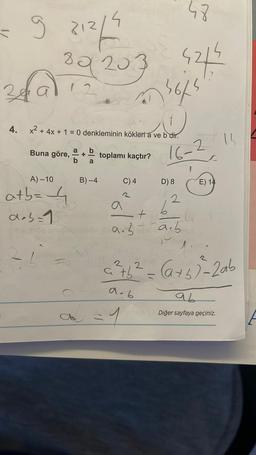 48
9 212/4
39 203 42/4
12 46/4
4. x² + 4x + 1 = 0 denkleminin kökleri a ve b dir.
Buna göre, a/b + b/a toplamı kaçtır? 16-2
A) –10 B) –4 C) 4 D) 8 E) 14
a+b=-4 a²/a.b + b²/a.b
a.b=1
a²+b²/a.b = (a+b)²-2ab/ab
ab = 1
Diğer sayfaya geçiniz.